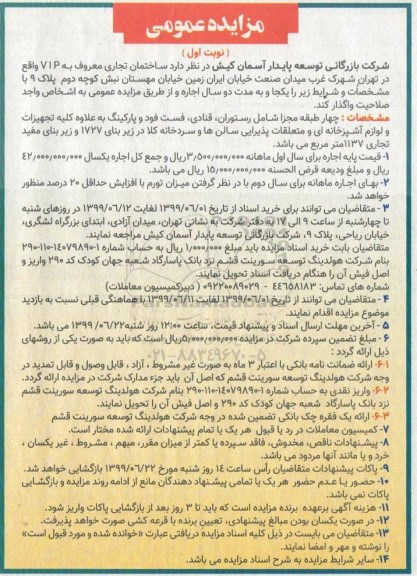 مزایده عمومی
( نوبت اول )
شرکت بازرگانی توسعه پایدار آسمان کیش در نظر دارد ساختمان تجاری معروف به VIP واقع
در تهران شهرک غرب میدان صنعت خیابان ایران زمین خیابان مهستان نبش کوچه دوم پلاک ۹ با
مشخصات و شرایط زیر را یکجا و به مدت دو سال اجاره و از طریق مزایده عمومی به اشخاص واجد
صلاحیت واگذار کند.
مشخصات : چهار طبقه مجزا شامل رستوران، قنادی، فست فود و پارکینگ به علاوه کلیه تجهیزات
و لوازم آشپزخانه ای و متعلقات پذیرایی سالن ها و سردخانه کلا در زیر بنای ۱۷۲۷ و زیر بنای مفید
تجاری ۱۱۳۷متر مربع می باشد.
۱- قیمت پایه اجاره برای سال اول ماهانه ۳٫۵۰۰٫۰۰۰٫۰۰۰ریال و جمع کل اجاره یکسال ۴۲٫۰۰۰٫۰۰۰٫۰۰۰
ریال و مبلغ ودیعه قرض الحسنه ۱۵٫۰۰۰٫۰۰۰٫۰۰۰ ریال می باشد.
۲- بهای اجاره ماهانه برای سال دوم با در نظر گرفتن میزان تورم با افزایش حداقل ۲۰ درصد منظور
خواهد شد.
۳ - متقاضیان می توانند برای خرید اسناد از تاریخ ۱۳۹۹/۰۶/۰۱ لغایت ۱۳۹۹/۰۶/۱۲ در روزهای شنبه
تا چهارشنبه از ساعت ۹ الی ۱۷ به دفتر شرکت به نشانی تهران، میدان آزادی، ابتدای بزرگراه لشگری،
خیابان ریاحی، پلاک ۹، شرکت بازرگانی توسعه پایدار آسمان کیش مراجعه نمایند.
متقاضیان بابت خرید اسناد مزایده باید مبلغ ۱٫۰۰۰٫۰۰۰ ریال به حساب شماره ۱-۱۴۰۷۹۸۹۰-۱۱۰-۲۹۰
بنام شرکت هولدینگ توسعه سورینت قشم نزد بانک پاسارگاد شعبه جهان کودک کد ۲۹۰ واریز و
اصل فیش آن را هنگام دریافت اسناد تحویل نمایند.
شماره های تماس: ۴۴۶۵۸۱۸۳ - ۰۹۲۲۰۰۸۹۰۲۹ (دبیرکمیسیون معاملات)
۴ - متقاضیان می توانند از تاریخ ۱۳۹۹/۰۶/۰۱ لغایت ۱۳۹۹/۰۶/۱۱ با هماهنگی قبلی نسبت به بازدید
موضوع مزایده اقدام نمایند.
۵ - آخرین مهلت ارسال اسناد و پیشنهاد قیمت، ساعت ۱۲:۰۰ روز شنبه۱۳۹۹/۰۶/۲۲ می باشد.
۶ - مبلغ تضمین سپرده شرکت در مزایده ۵٫۰۰۰٫۰۰۰٫۰۰۰ریال است که باید به صورت یکی از روشهای
ذیل ارائه گردد :
۶-۱- ارائه ضمانت نامه بانکی با اعتبار ۳ ماه به صورت غیر مشروط ، آزاد ، قابل وصول و قابل تمدید در
وجه شرکت هولدینگ توسعه سورینت قشم که اصل آن باید جزء مدارک شرکت در مزایده ارائه گردد.
۶-۲- واریز نقدی به حساب شماره ۱-۱۴۰۷۹۸۹۰-۱۱۰-۲۹۰ بنام شرکت هولدینگ توسعه سورینت قشم
نزد بانک پاسارگاد شعبه جهان کودک کد ۲۹۰ و اصل فیش آن را تحویل نمایند.
۶-۳- ارائه یک فقره چک بانکی تضمین شده در وجه شرکت هولدینگ توسعه سورینت قشم
۷- کمیسیون معاملات در رد یا قبول هر یک یا تمام پیشنهادات ارائه شده مختار است.
۸- پیشنهادات ناقص، مخدوش، فاقد سپرده یا کمتر از میزان مقرر، مبهم ، مشروط ، غیر یکسان ،
خرد و یا مانند آنها مردود می باشد.
۹- پاکات پیشنهادات متقاضیان رأس ساعت ۱۴ روز شنبه مورخ ۱۳۹۹/۰۶/۲۲ بازگشایی خواهد شد.
۱۰- حضور یا عدم حضور هر یک یا تمامی پیشنهاد دهندگان مانع از ادامه روند مزایده و بازگشایی
پاکات نمی باشد.
۱۱- هزینه آگهی برعهده برنده مزایده است که باید تا ۳ روز بعد از بازگشایی پاکات واریز شود.
۱۲- در صورت یکسان بودن مبالغ پیشنهادی، تعیین برنده با قرعه کشی صورت خواهد پذیرفت.
۱۳- متقاضیان می بایست در ذیل کلیه اسناد مزایده دریافتی عبارت «خوانده شده و مورد قبول است»
را نوشته و مهر و امضا نمایند.
۱۴- سایر شرایط مزایده به شرح اسناد مزایده می باشد.
۰۲۱-۸۸۳۴۹۶۷۰-۵